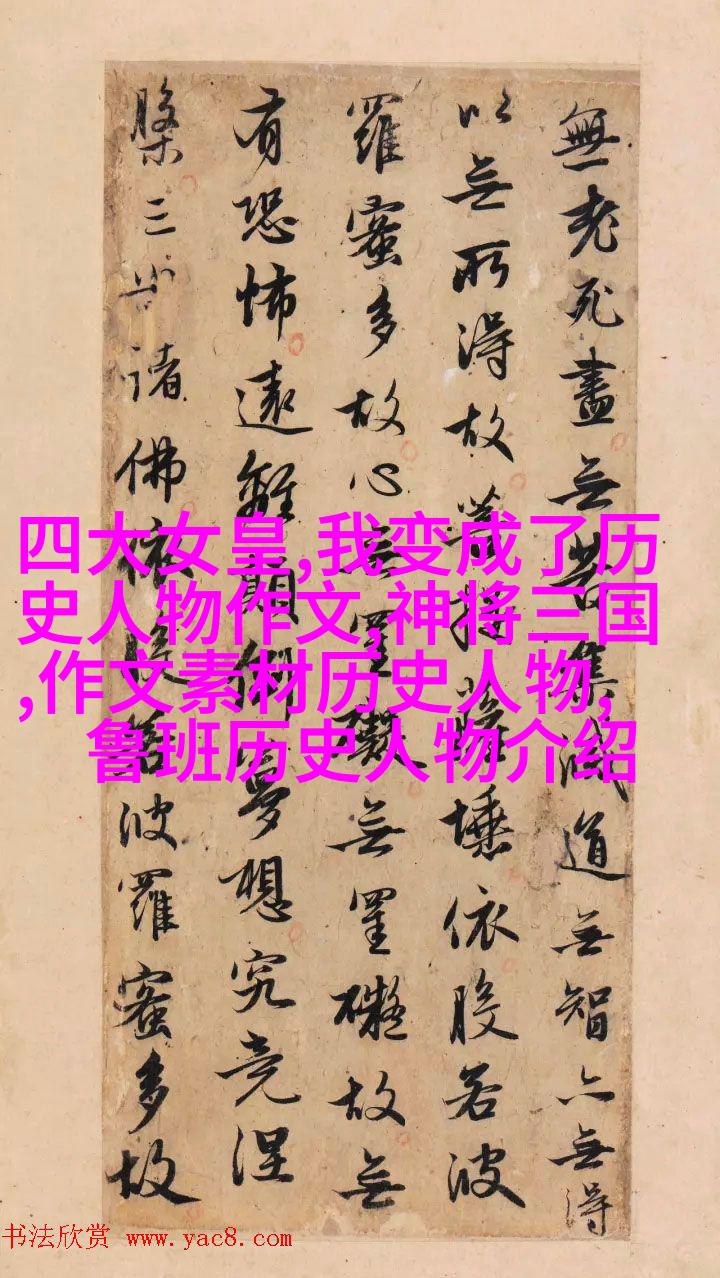 無老死盡无苦集滅道无智亦无得
以无所得故菩提薩埵依般若波
羅蜜多故心无罣礙无罣礙故无
有恐怖遠離顛倒夢想究竟涅
槃三世諸佛依般若波羅蜜多故
四大女皇,我变成了历
史人物作文,神将三国
,作文素材历史人物,
鲁班历史人物介绍
书法欣赏 www.yac8.com